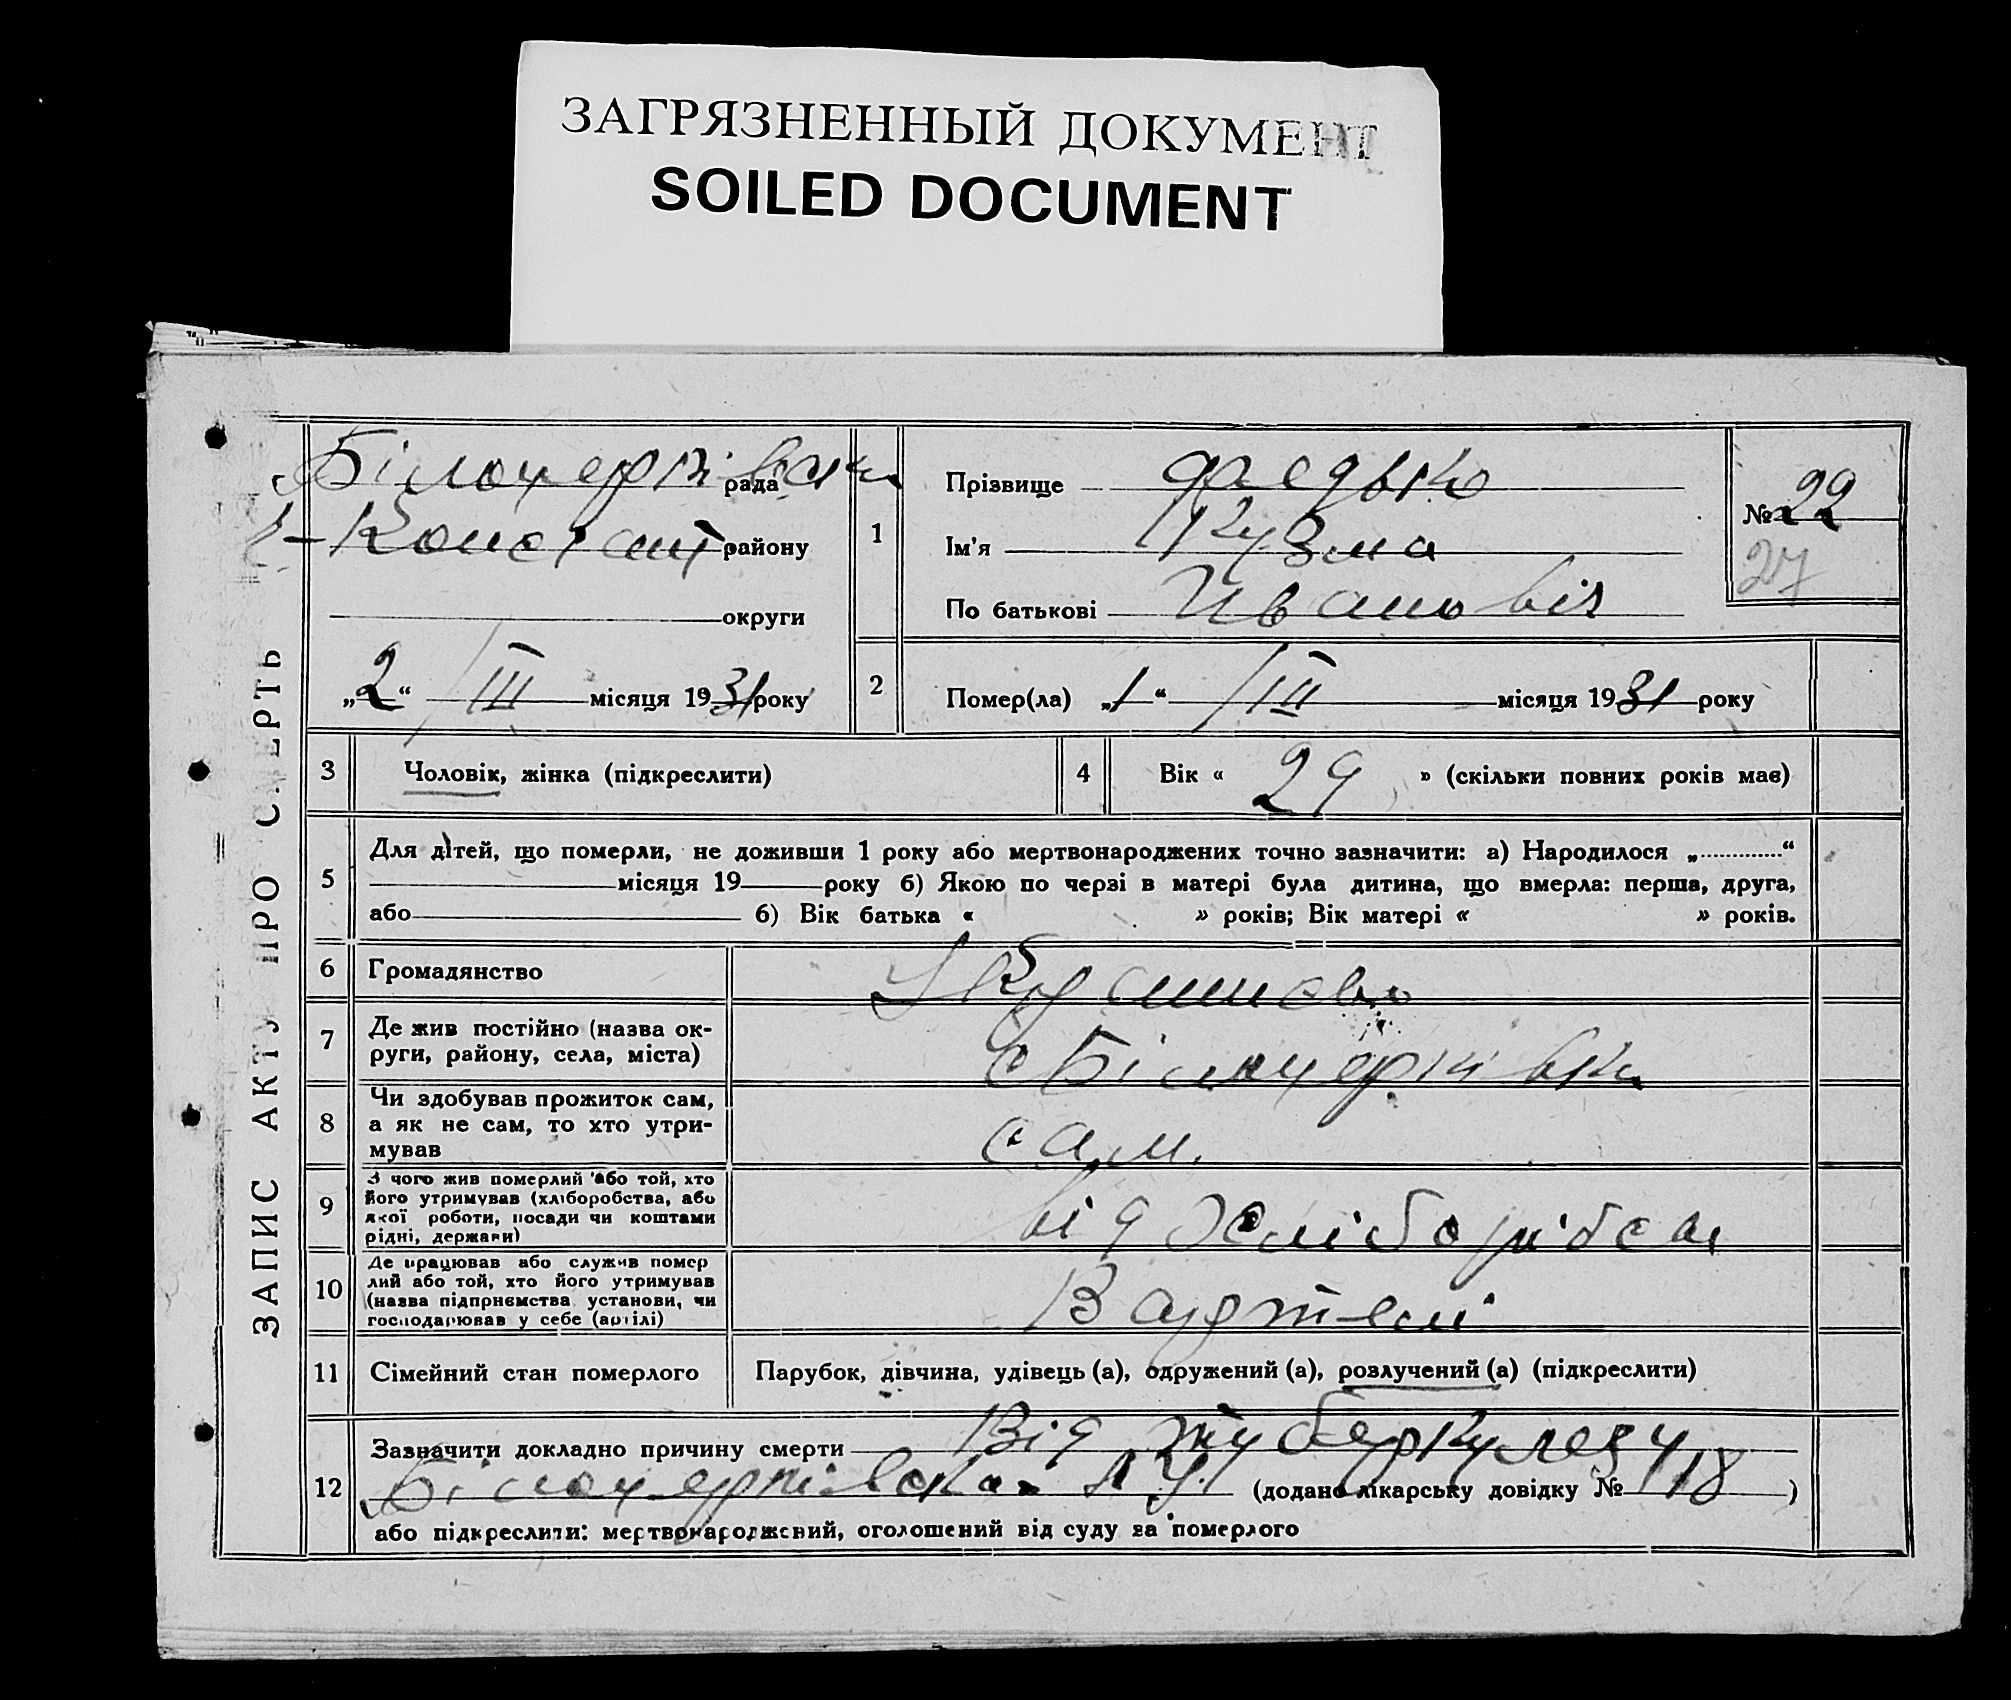 ЗАГРЯЗНЕННЫЙ ДОКУМЕНТ
SOILED DOCUMENT
ЗАПИС АКТУ ПРО СМЕРТЬ
Білоцерківська рада
Констант району
округи
„2“ /III місяця 1931 року
1
Прізвище Федько
Ім'я Кузма
По батькові Ивановіч
№ 22
27
2
Помер(ла) „1“ /III місяця 1931 року
3
Чоловік, жінка (підкреслити)
4
Вік « 29 » (скільки повних років має)
5
Для дітей, що померли, не доживши 1 року або мертвонароджених точно зазначити: а) Народилося „.............“
місяця 19 року б) Якою по черзі в матері була дитина, що вмерла: перша, друга,
або б) Вік батька « » років; Вік матері « » років.
6
Громадянство
Украинсько
7
Де жив постійно (назва ок-
руги, району, села, міста)
с Білоцерківка
8
Чи здобував прожиток сам,
а як не сам, то хто утри-
мував
сам.
9
З чого жив померлий або той, хто
його утримував (хліборобства, або
якої роботи, посади чи коштами
рідні, держави)
від
10
Де працював або служив помер
лий або той, хто його утримував
(назва підприємства установи, чи
господарював у себе (артілі)
В артелі
11
Сімейний стан померлого
Парубок, дівчина, удівець (а), одружений (а), розлучений (а) (підкреслити)
12
Зазначити докладно причину смерти Від туберкулезу
Білоцерківска (додано лікарську довідку № 118 )
або підкреслити: мертвонароджений, оголошений від суду за померлого